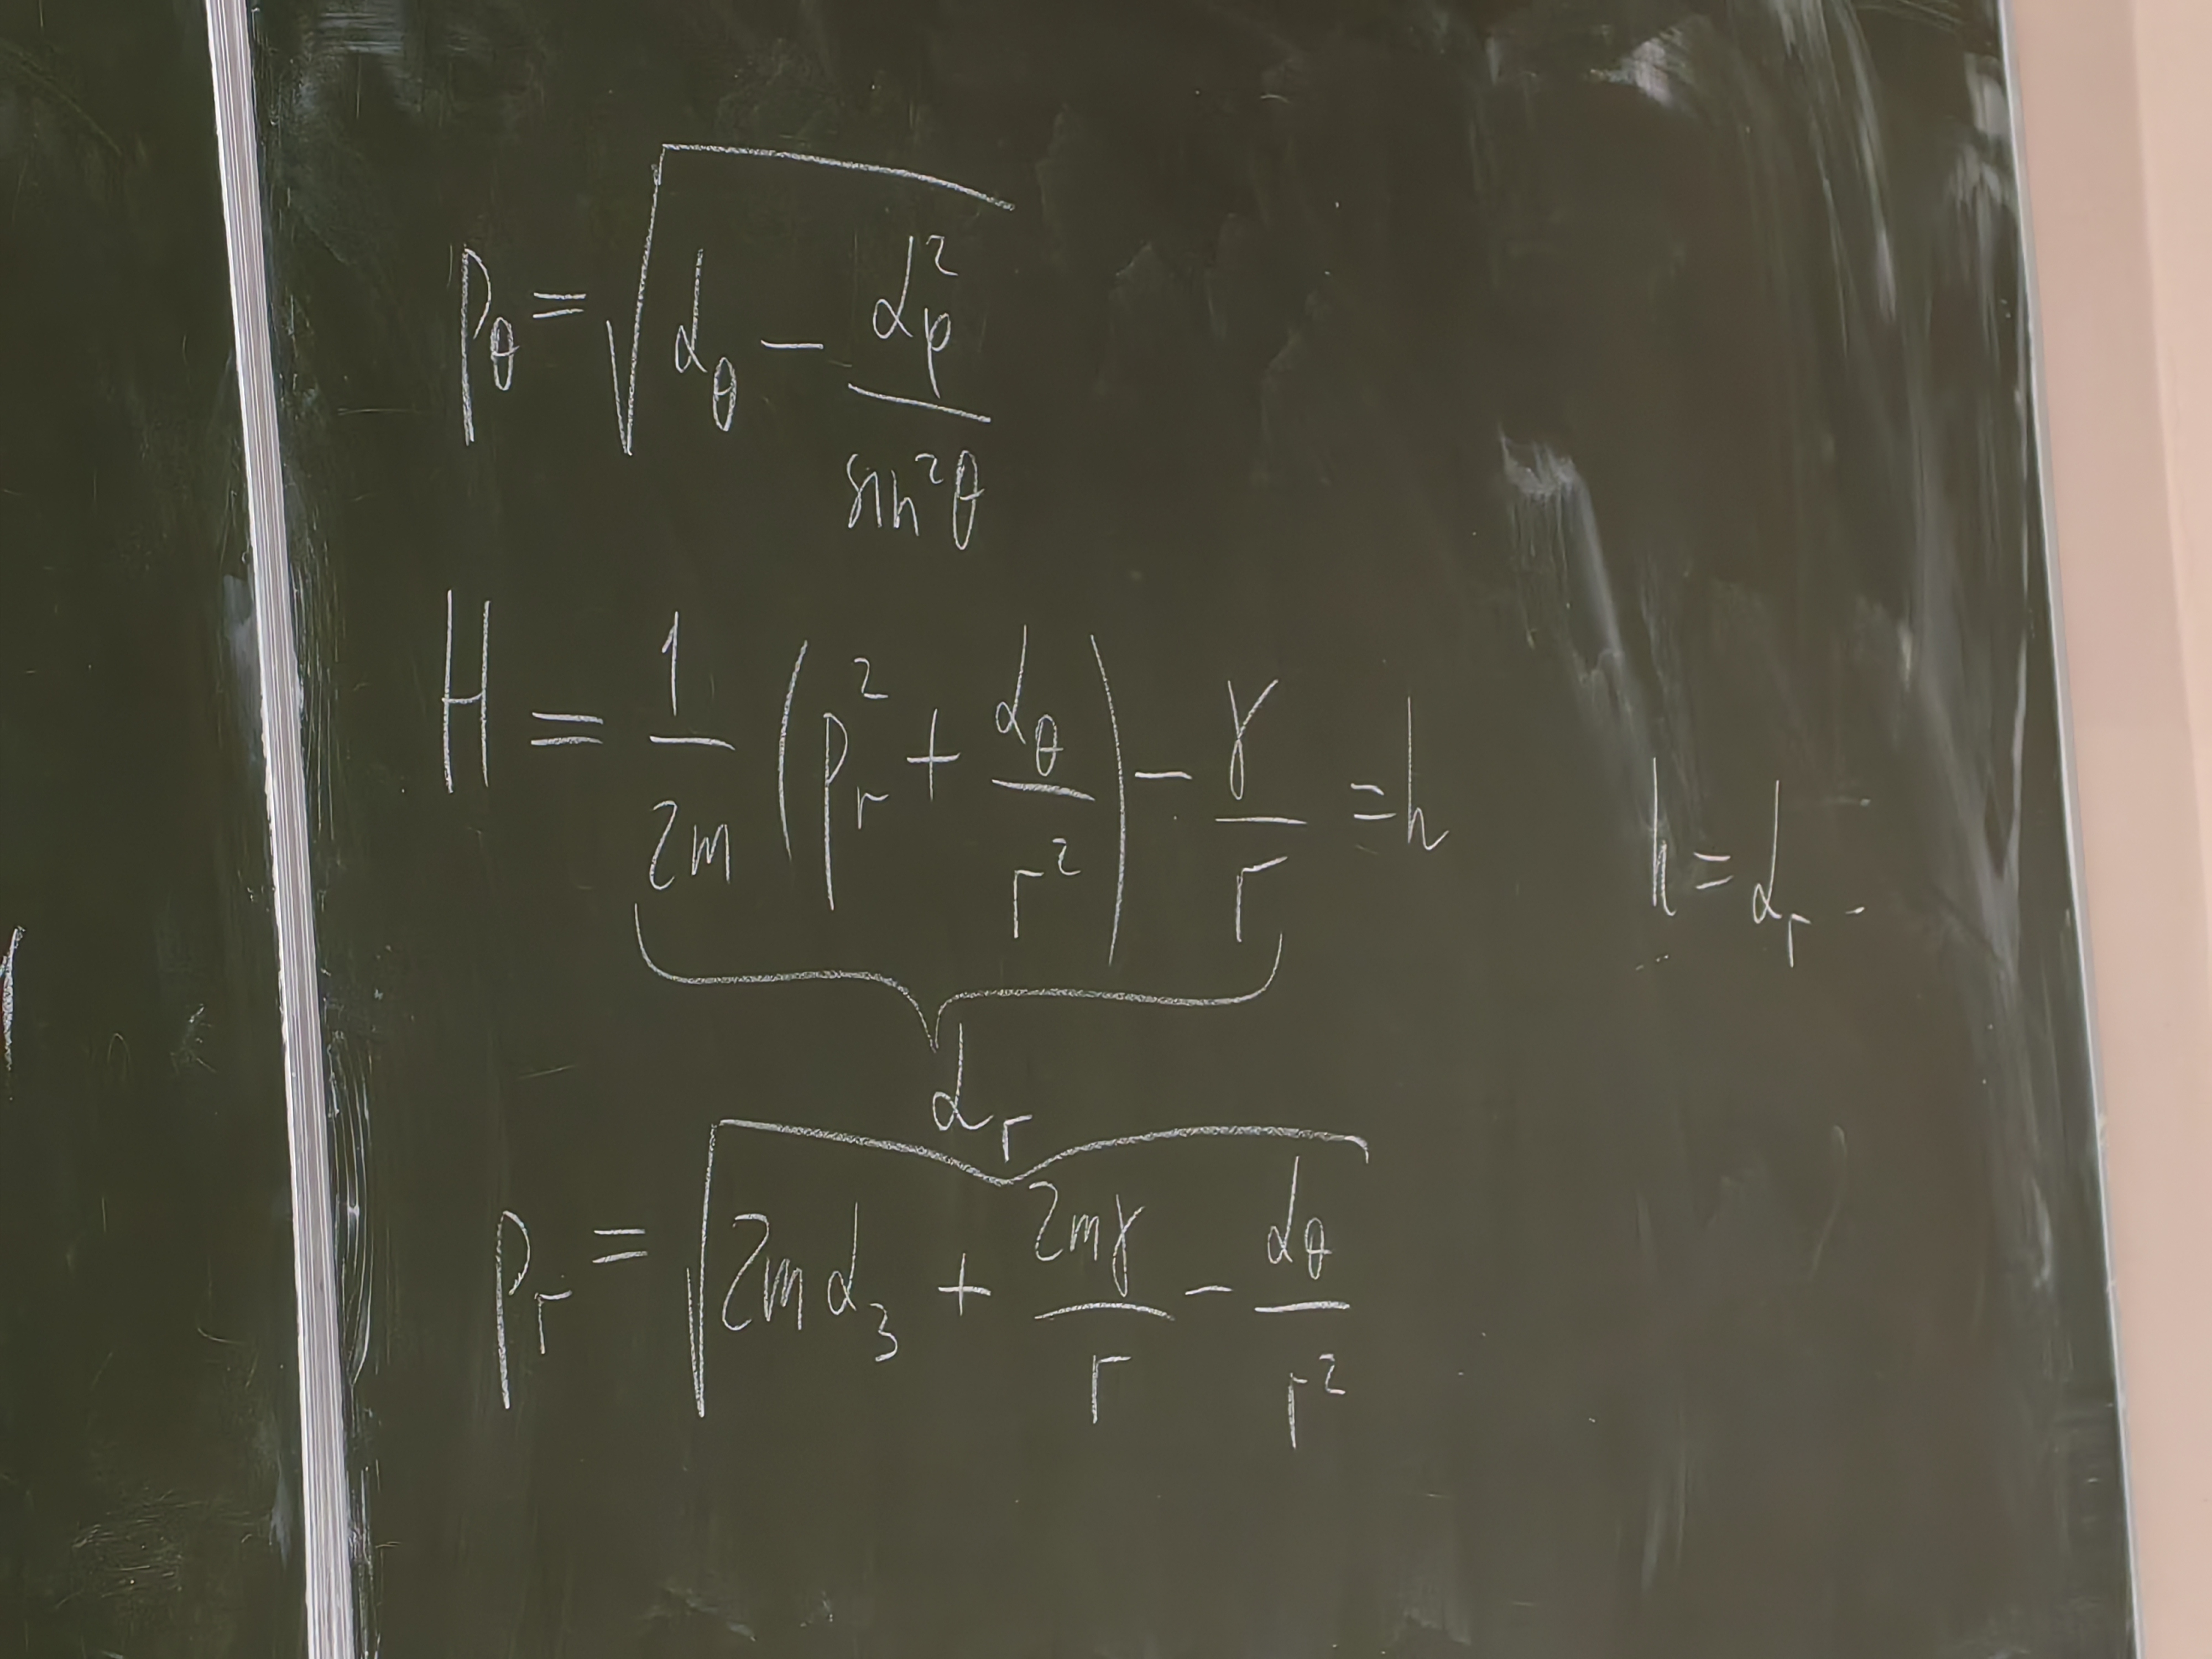 p_θ = √(α_θ − α_φ²/sin²θ)
H = 1/2m (p_r² + α_θ/r²) − γ/r = h
h = α_r
α_r
p_r = √(2mα_3 + 2mγ/r − α_θ/r²)